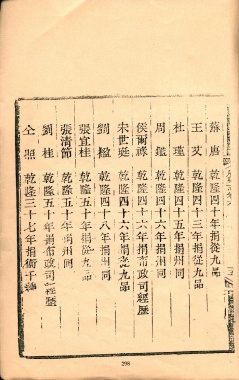 蘇唐　乾隆四十年捐從九品
王文　乾隆四十三年捐從九品
杜瑾　乾隆四十五年捐州同
周鑑　乾隆四十六年捐州同
侯爾祿　乾隆四十六年捐布政司經歷
朱世延　乾隆四十六年捐從九品
劉楹　乾隆四十八年捐州同
張宜桂　乾隆五十年捐從九品
張清節　乾隆五十年捐州同
劉桂　乾隆五十年捐布政司經歷
仝照　乾隆三十七年捐衛千總
298